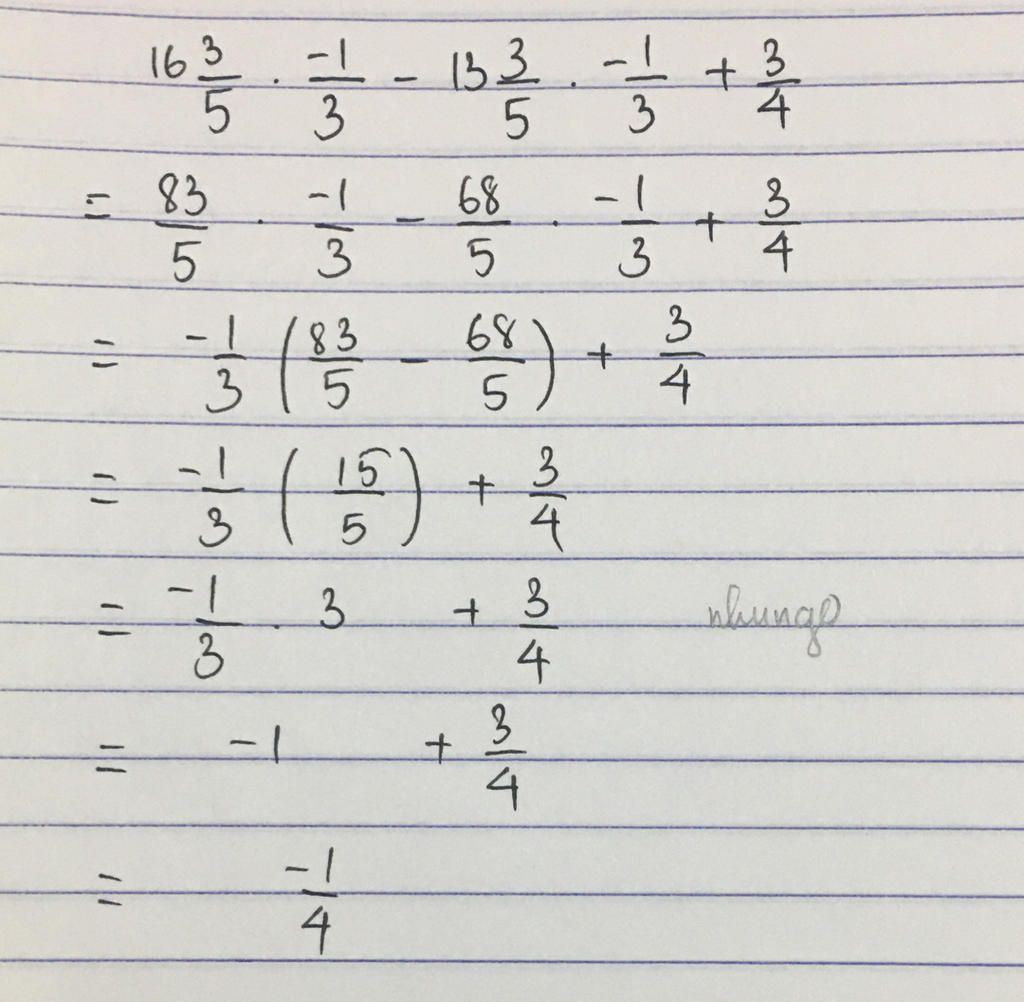 16 3/5 · -1/3 - 13 3/5 · -1/3 + 3/4
= 83/5 · -1/3 - 68/5 · -1/3 + 3/4
= -1/3 (83/5 - 68/5) + 3/4
= -1/3 (15/5) + 3/4
= -1/3 · 3 + 3/4 nhungo
= -1 + 3/4
= -1/4